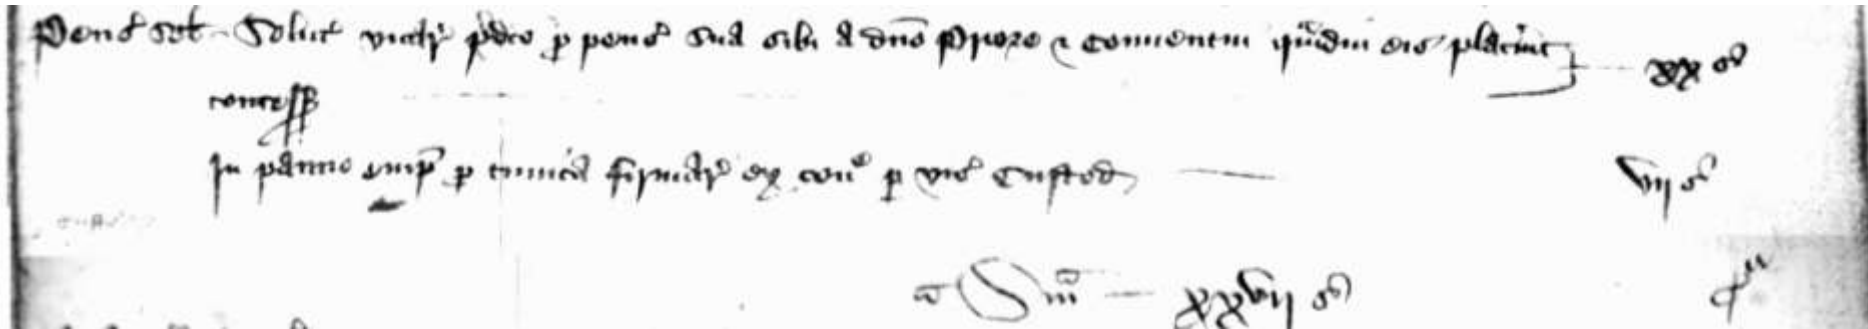 Penc̄ sol̄ Solut̄ vicar̄ p̄dco p̄ penc̄ sua sibi a dno Priore & Conventu q̄mdiu eis placūit xx s̄
concess̄
In panno empt̄ p̄ tunica firmar̄ ex con̄ p̄ vic̄ Custod̄ vij s̄
Sm̄ xxvij s̄